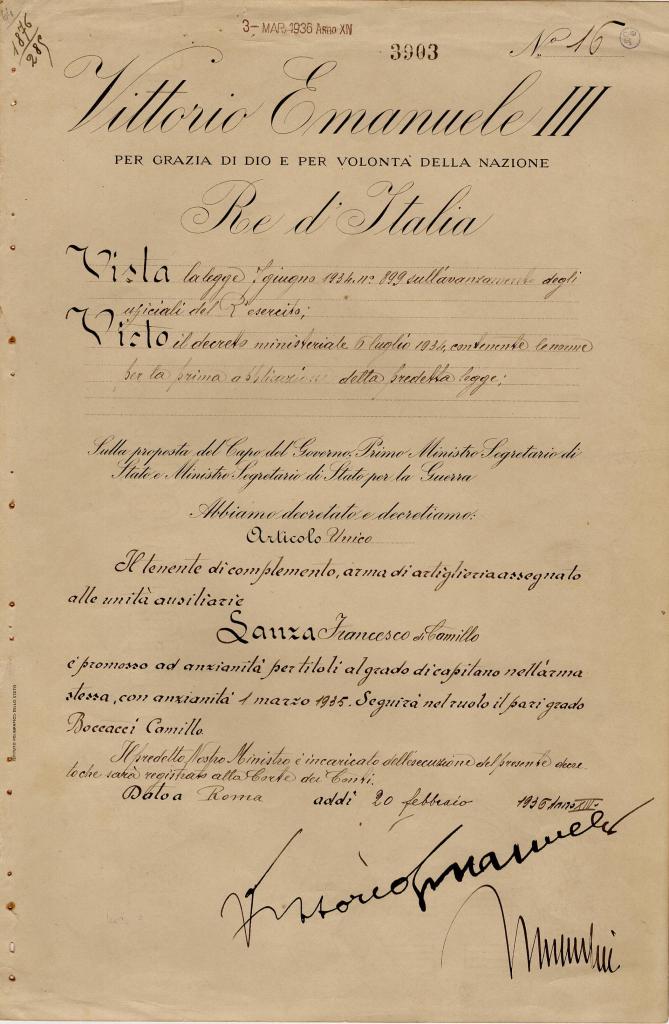 1876
285
3- MAR. 1936 Anno XIV
3903
No 16
Vittorio Emanuele III
PER GRAZIA DI DIO E PER VOLONTÀ DELLA NAZIONE
Re d'Italia
Vista la legge 7 giugno 1934, no 899 sull'avanzamento degli
ufficiali del R. esercito;
Visto il decreto ministeriale 6 luglio 1934, contenente le norme
per la prima applicazione della predetta legge;
Sulla proposta del Capo del Governo, Primo Ministro Segretario di
Stato e Ministro Segretario di Stato per la Guerra
Abbiamo decretato e decretiamo:
Articolo Unico
Il tenente di complemento, arma di artiglieria assegnato
alle unità ausiliarie
Lanza Francesco di Camillo
è promosso ad anzianità per titoli al grado di capitano nell'arma
stessa, con anzianità 1 marzo 1935. Seguirà nel ruolo il pari grado
Boccacci Camillo.
Il predetto Nostro Ministro è incaricato dell'esecuzione del presente decre-
to che sarà registrato alla Corte dei Conti.
Dato a Roma addì 20 febbraio 1936 Anno XIII
Vittorio Emanuele
Mussolini